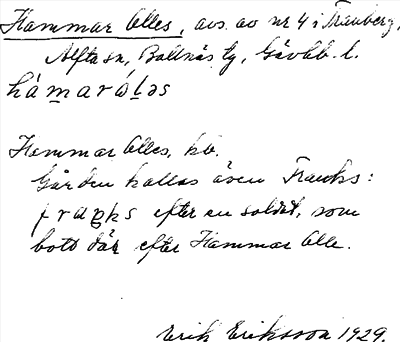 Hammar Olles, avs. av nr 4 i Tranberg,
Alfta sn, Bollnäs tg, Gävleb. l.
hámarólǝs
Hammar Olles, hb.
Gården kallas även Franks:
fraŋks efter en soldat, som
bott där efter Hammar Olle.
Erik Eriksson 1929.